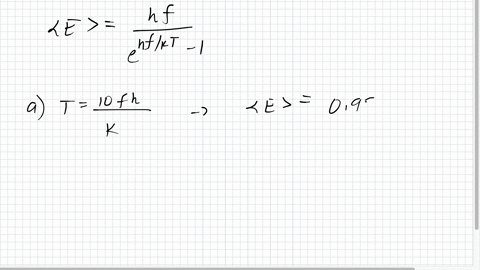 <E> = hf / e^(hf/kT) - 1
a) T = 10fh / K → <E> = 0,95